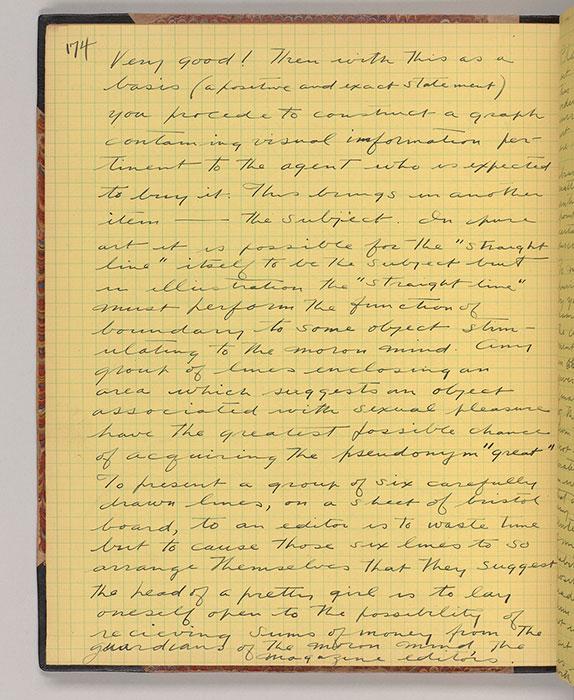 174
Very good! Then with this as a
basis (a positive and exact statement)
you procede to construct a graph
containing visual information per-
tinent to the agent who is expected
to buy it. This brings in another
item —— the subject. In pure
art it is possible for the "straight
line" itself to be the subject but
in illustration the "straight line"
must perform the function of
boundary to some object stim-
ulating to the moron mind. Any
group of lines enclosing an
area which suggests an object
associated with sexual pleasure
have the greatest possible chance
of acquiring the pseudonym "great"
To present a group of six carefully
drawn lines, on a sheet of bristol
board, to an editor is to waste time
but to cause those six lines to so
arrange themselves that they suggest
the head of a pretty girl is to lay
oneself open to the possibility of
recieving sums of money from the
guardians of the moron mind the
magazine editors.